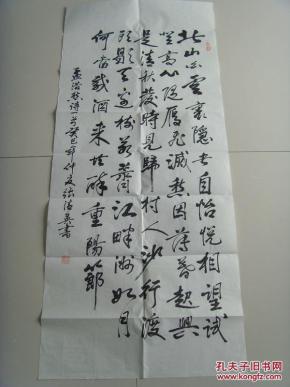 北山白雲裏隱者自怡悅相望試
登高心隨雁飛滅愁因薄暮起興
是清秋發時見歸村人沙行渡
頭歇天邊樹若薺江畔洲如月
何當載酒來共醉重陽節
孟浩然诗一首癸巳年仲夏書